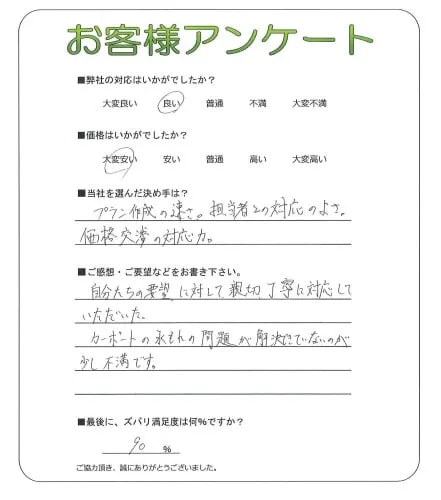 お客様アンケート
■弊社の対応はいかがでしたか?
大変良い 良い 普通 不満 大変不満
■価格はいかがでしたか?
大変安い 安い 普通 高い 大変高い
■当社を選んだ決め手は?
プラン作成の速さ。担当者との対応のよさ。
価格交渉の対応力。
■ご感想・ご要望などをお書き下さい。
自分たちの要望に対して親切、丁寧に対応して
いただいた。
カーポートの水もれの問題が解決できていないのが
少し不満です。
■最後に、ズバリ満足度は何%ですか?
90 %
ご協力頂き、誠にありがとうございました。